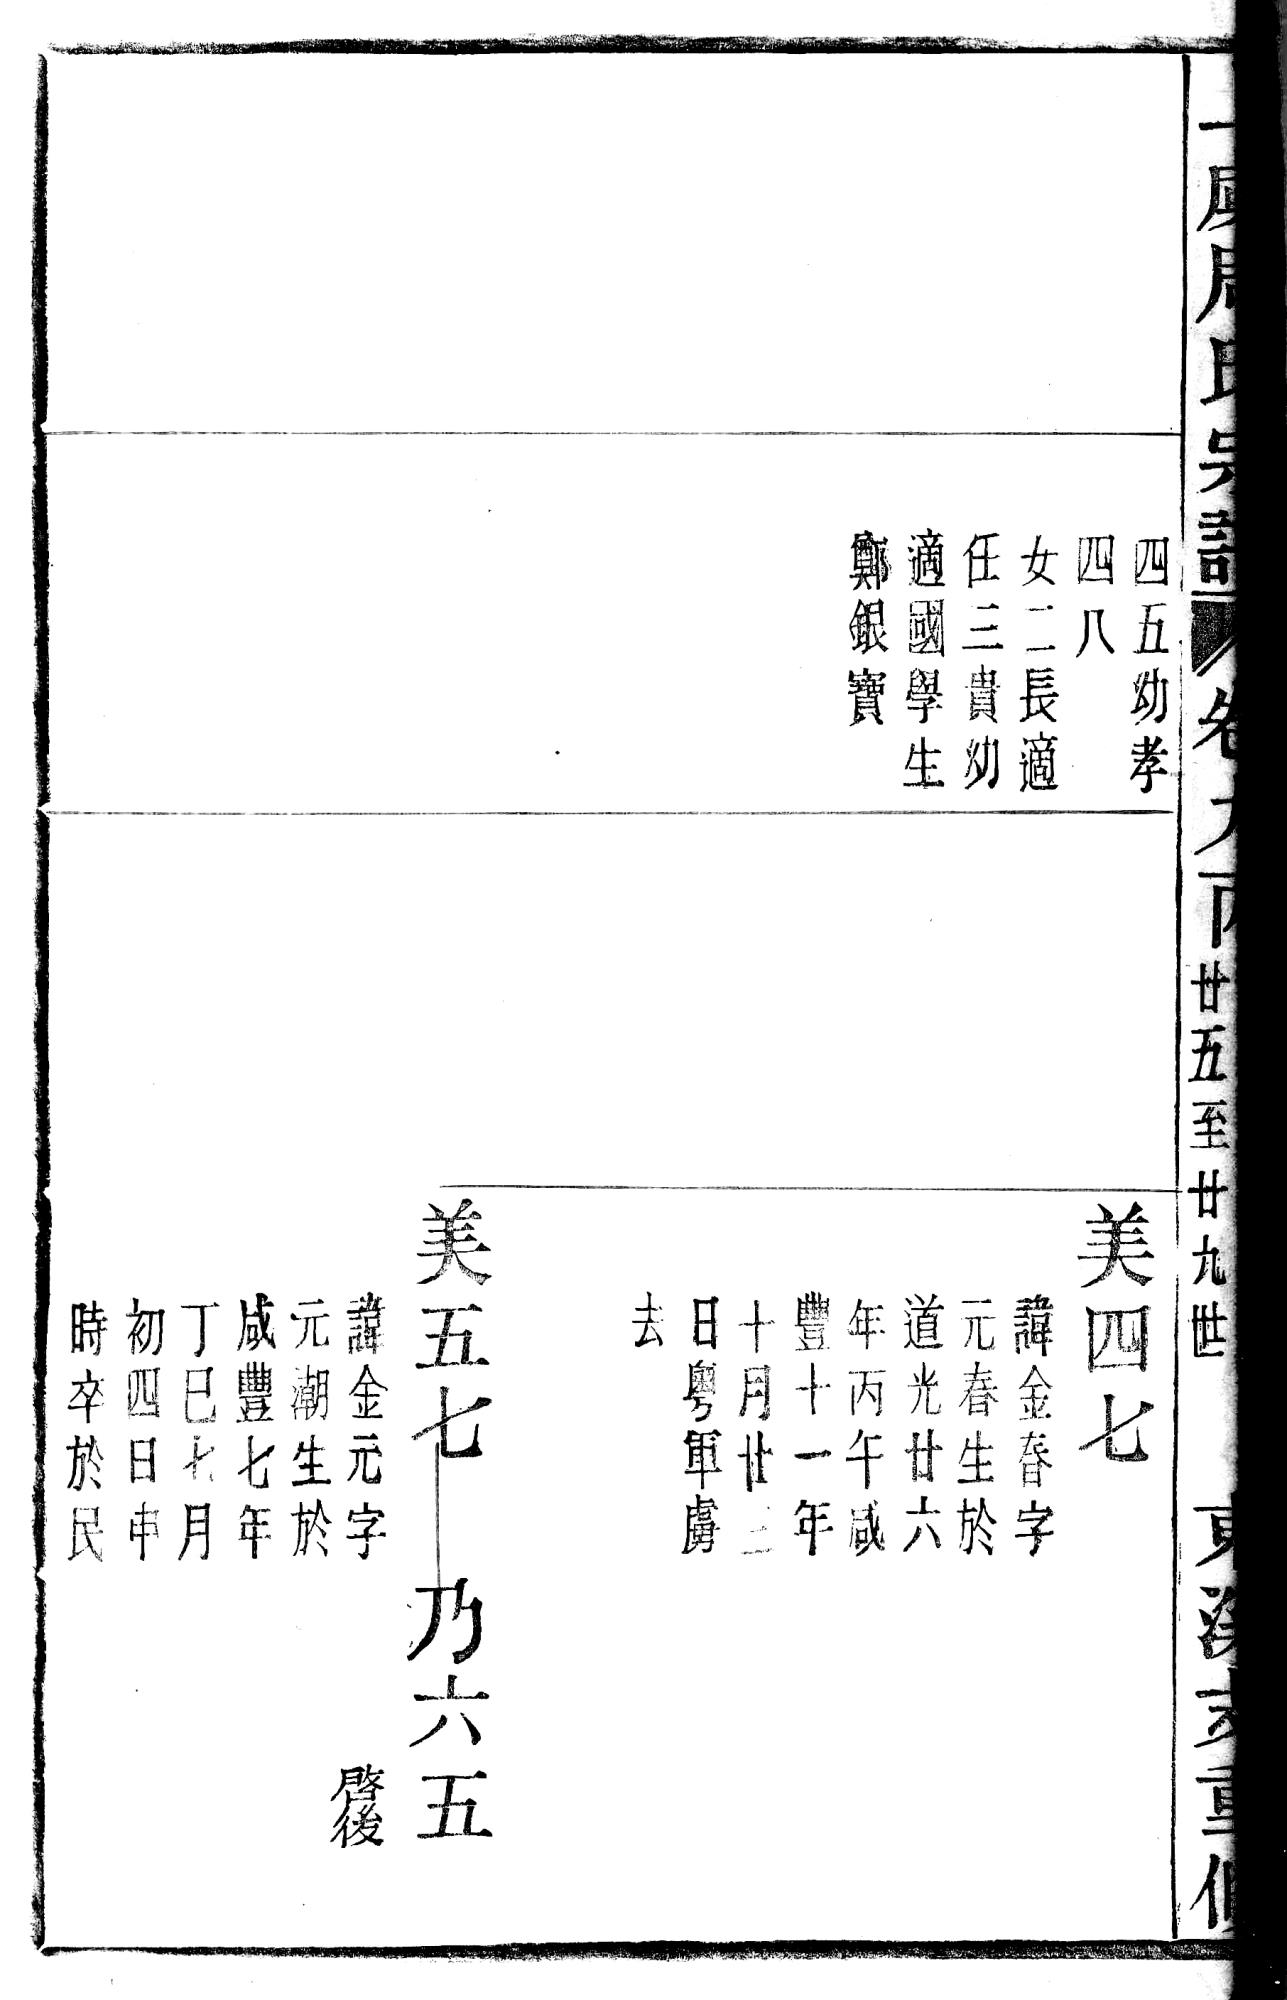 周氏宗譜 卷
廿五至廿九世
重修
四五幼孝
四八
女二長適
任三貴幼
適國學生
鄭銀寶
美四七
諱金春字
元春生於
道光廿六
年丙午咸
豐十一年
十月廿三
日粵軍虜
去
美五七
諱金元字
元潮生於
咸豐七年
丁巳七月
初四日申
時卒於民
乃六五
啓後